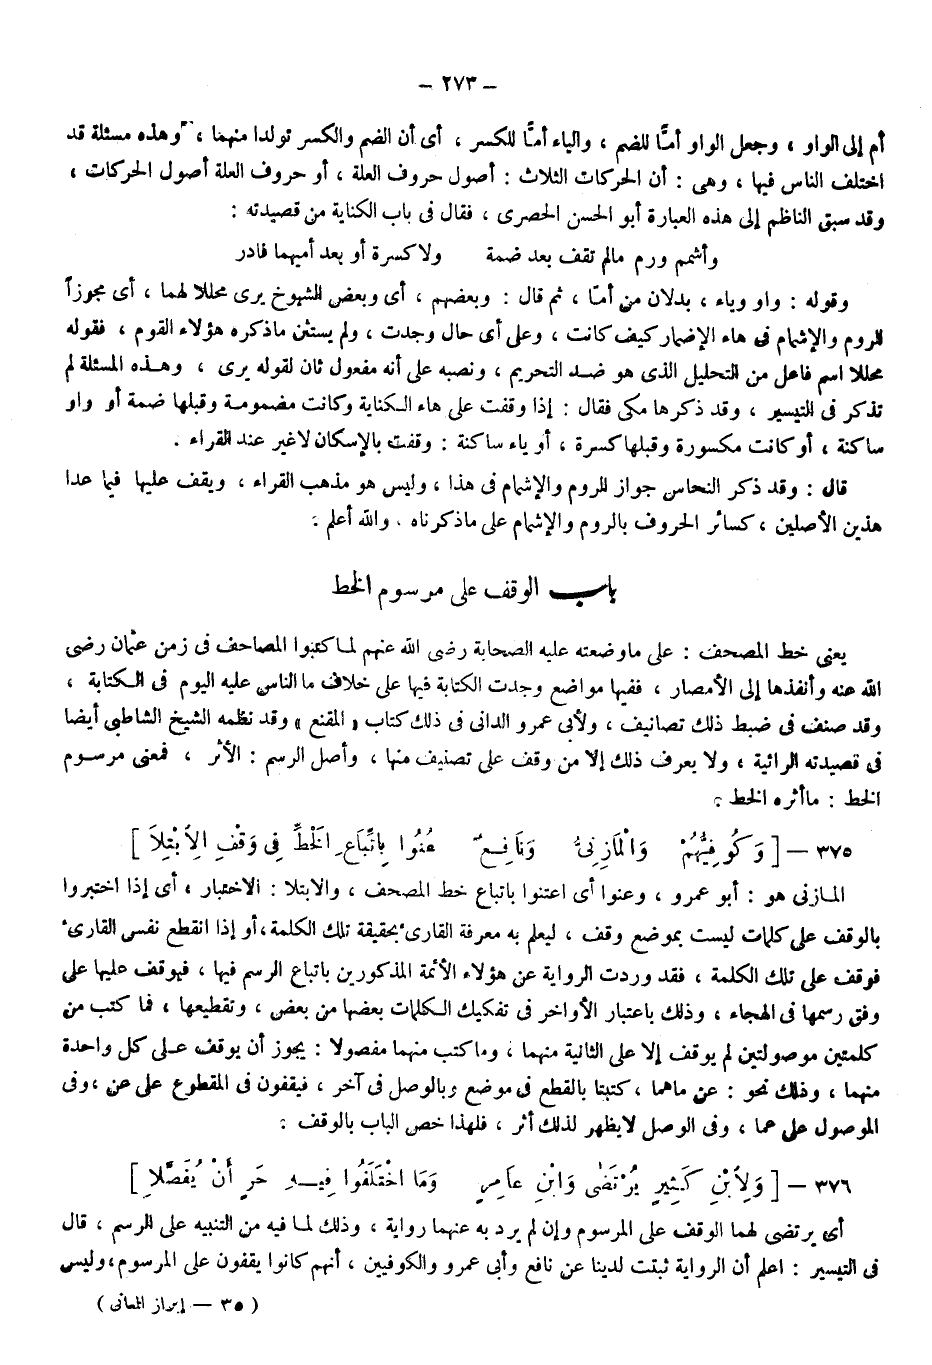 – ٢٧٣ –
أم إلى الواو ، وجعل الواو أمًّا للضم ، والياء أمًّا للكسر ، أى أن الضم والكسر تولدا منهما ، وهذه مسئلة قد
اختلف الناس فيها ، وهى : أن الحركات الثلاث : أصول حروف العلة ، أو حروف العلة أصول الحركات ،
وقد سبق الناظم إلى هذه العبارة أبو الحسن الحصرى ، فقال فى باب الكناية من قصيدته :
وأشمم ورم مالم تقف بعد ضمة ولاكسرة أو بعد أميهما فادر
وقوله : واو وياء ، بدلان من أمّا ، ثم قال : وبعضهم ، أى وبعض الشيوخ يرى محللا لهما ، أى مجوزاً
للروم والإشمام فى هاء الإضمار كيف كانت ، وعلى أى حال وجدت ، ولم يستثن ماذكره هؤلاء القوم ، فقوله
محللا اسم فاعل من التحليل الذى هو ضد التحريم ، ونصبه على أنه مفعول ثان لقوله يرى ، وهذه المسئلة لم
تذكر فى التيسير ، وقد ذكرها مكى فقال : إذا وقفت على هاء الكناية وكانت مضمومة وقبلها ضمة أو واو
ساكنة ، أو كانت مكسورة وقبلها كسرة ، أو ياء ساكنة : وقفت بالإسكان لاغير عند القراء .
قال : وقد ذكر النحاس جواز الروم والإشمام فى هذا ، وليس هو مذهب القراء ، ويقف عليها فيما عدا
هذين الأصلين ، كسائر الحروف بالروم والإشمام على ماذكرناه . والله أعلم :
باب الوقف على مرسوم الخط
يعنى خط المصحف : على ماوضعته عليه الصحابة رضى الله عنهم لما كتبوا المصاحف فى زمن عثمان رضى
الله عنه وأنفذها إلى الأمصار ، ففيها مواضع وجدت الكتابة فيها على خلاف ما الناس عليه اليوم فى الكتابة ،
وقد صنف فى ضبط ذلك تصانيف ، ولأبى عمرو الدانى فى ذلك كتاب «المقنع» وقد نظمه الشيخ الشاطبى أيضا
فى قصيدته الرائية ، ولا يعرف ذلك إلا من وقف على تصنيف منها ، وأصل الرسم : الأثر ، فمعنى مرسوم
الخط : ماأثره الخط :
٣٧٥ – [وَكُوفِيُّهُمْ وَالْمَازِنِىُّ وَنَافِعٌ عُنُوا بِاتِّبَاعِ الْخَطِّ فِى وَقْفِ الِابْتِلَا]
المازنى هو : أبو عمرو ، وعنوا أى اعتنوا باتباع خط المصحف ، والابتلا : الاختبار ، أى إذا اختبروا
بالوقف على كلمات ليست بموضع وقف ، ليعلم به معرفة القارئ بحقيقة تلك الكلمة، أو إذا انقطع نفسى القارئ
فوقف على تلك الكلمة ، فقد وردت الرواية عن هؤلاء الأئمة المذكورين باتباع الرسم فيها ، فيوقف عليها على
وفق رسمها فى الهجاء ، وذلك باعتبار الأواخر فى تفكيك الكلمات بعضها من بعض ، وتقطيعها ، فما كتب من
كلمتين موصولتين لم يوقف إلا على الثانية منهما ، وماكتب منهما مفصولا : يجوز أن يوقف على كل واحدة
منهما ، وذلك نحو : عن ماهما ، كتبتا بالقطع فى موضع وبالوصل فى آخر ، فيقفون فى المقطوع على عن ، وفى
الموصول على عما ، وفى الوصل لايظهر لذلك أثر ، فلهذا خص الباب بالوقف :
٣٧٦ – [وَلِابْنِ كَثِيرٍ يُرْتَضٰى وَابْنِ عَامِرٍ وَمَا اخْتَلَفُوا فِيهِ حَرٍ أَنْ يُفَصَّلَا]
أى يرتضى لهما الوقف على المرسوم وإن لم يرد به عنهما رواية ، وذلك لما فيه من التنبيه على الرسم ، قال
فى التيسير : اعلم أن الرواية ثبتت لدينا عن نافع وأبى عمرو والكوفيين ، أنهم كانوا يقفون على المرسوم، وليس
( ٣٥ – إبراز المعانى )